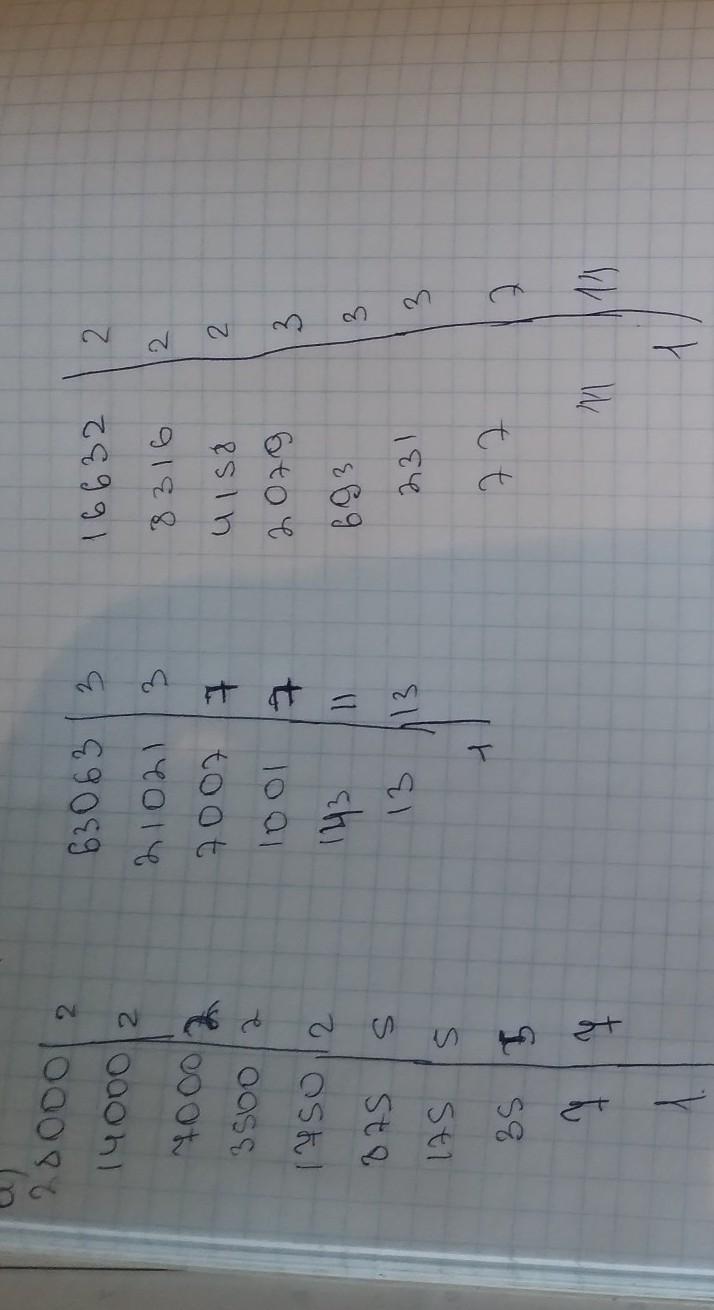 а)
28000 2
14000 2
7000 2
3500 2
1750 2
875 5
175 5
35 5
7 7
1
63063 3
21021 3
7007 7
1001 7
143 11
13 13
1
16632 2
8316 2
4158 2
2079 3
693 3
231 3
77 7
11 11
1